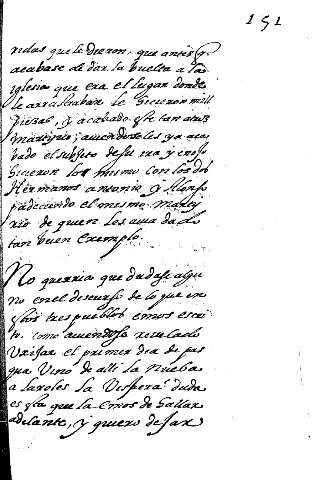 151
ridas que le dieron, que antes q.
acabase de dar la buelta a la
iglesia que era el lugar donde
le arrastraban le hicieron mill
piezas, y acabado este tan atroz
martyrio; auiendoseles ya aca
bado el subjeto de su ira y enojo
hicieron lo mismo con los dos
Hermanos antonio y Alonso
padeciendo el mismo marty
rio de quien les auia dado
tan buen exemplo.
No querria que dudase algu
no en el descurso de lo que en
estos tres pueblos emos escri
to. como auiendose reuelado
Vrisar el primer dia de pas
qua Vino de alli la nueba
a laroles la Vispera: duda
es esta que la emos de hallar
adelante, y quiero dejar